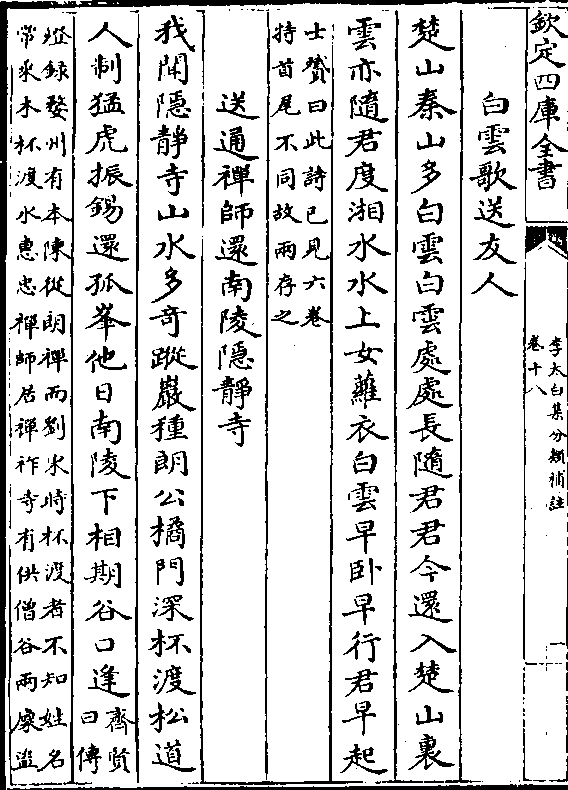 欽定四庫全書
李太白集分類補註
卷十八
白雲歌送友人
楚山秦山多白雲白雲處處長隨君君今還入楚山裏
雲亦隨君度湘水水上女蘿衣白雲早卧早行君早起
士贇曰此詩已見六卷
持首尾不同故兩存之
送通禪師還南陵隱靜寺
我聞隱靜寺山水多奇蹤巖種朗公橘門深杯渡松道
人制猛虎振錫還孤峯他日南陵下相期谷口逢
齊賢
曰傳
燈録婺州有本陳從朗禪而劉宋時杯渡者不知姓名
常乘木杯渡水惠忠禪師居禪祚寺有供僧谷兩廩盜